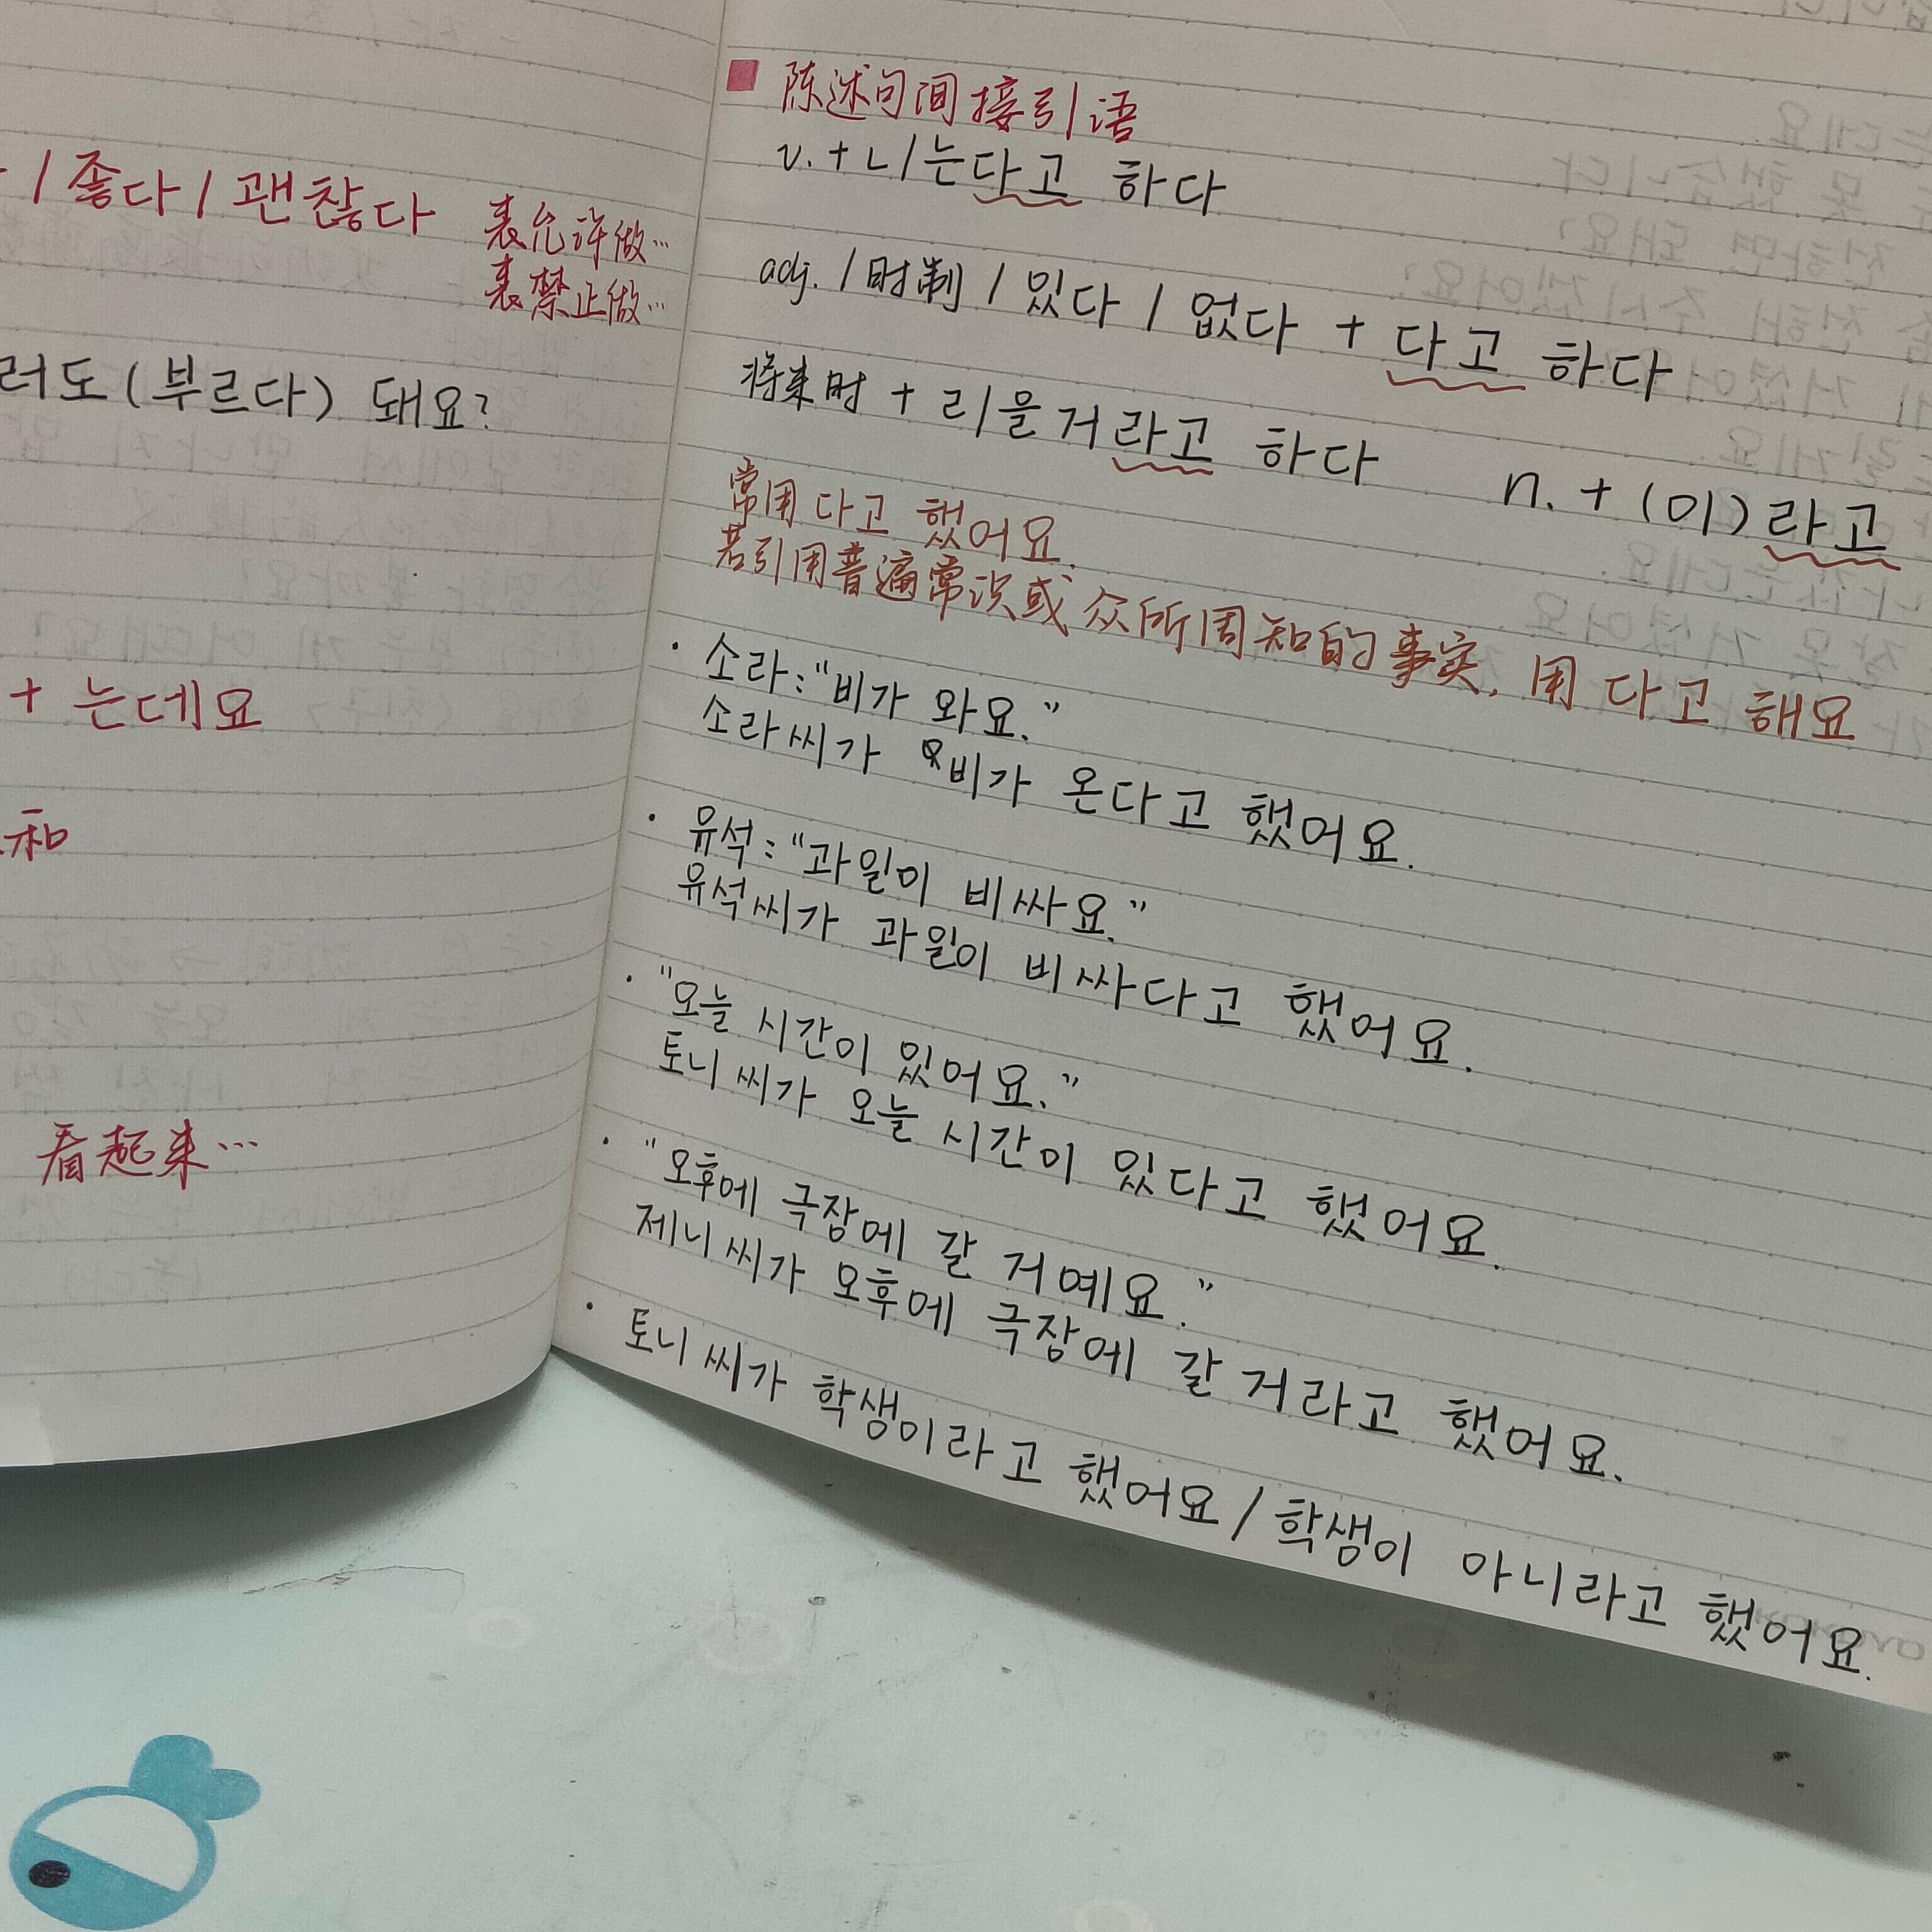 / 좋다 / 괜찮다 表允许做…
表禁止做…
러도 (부르다) 돼요?
+ 는데요
和
看起来…
陈述句间接引语
v. + ㄴ/는다고 하다
adj. / 时制 / 있다 / 없다 + 다고 하다
将来时 + ㄹ/을 거라고 하다 n. + (이)라고
常用 다고 했어요.
若引用普遍常识或众所周知的事实, 用 다고 해요
· 소라: "비가 와요."
소라 씨가 비가 온다고 했어요.
· 유석: "과일이 비싸요."
유석 씨가 과일이 비싸다고 했어요.
· "오늘 시간이 있어요."
토니 씨가 오늘 시간이 있다고 했어요.
· "오후에 극장에 갈 거예요."
제니 씨가 오후에 극장에 갈 거라고 했어요.
· 토니 씨가 학생이라고 했어요 / 학생이 아니라고 했어요.